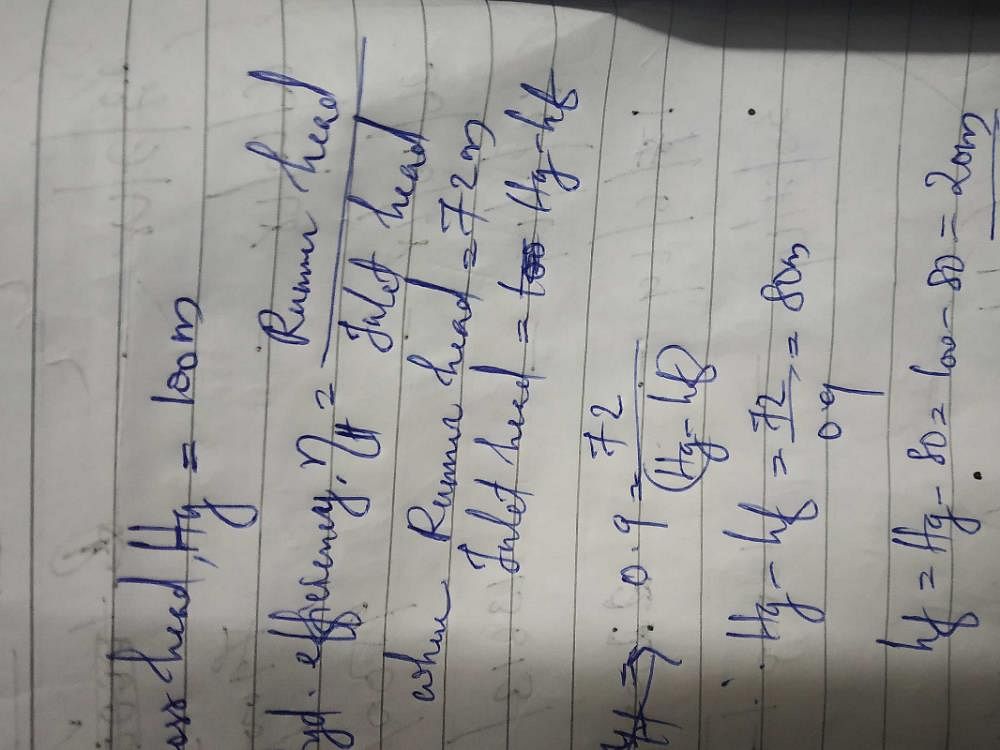 head, Hg = 100m
yd. efficiency, η = Runner head / Inlet head
when Runner head = 72m
Inlet head = Hg - hf
0.9 = 72 / (Hg - hf)
Hg - hf = 72 / 0.9 = 80m
hf = Hg - 80 = 100 - 80 = 20m